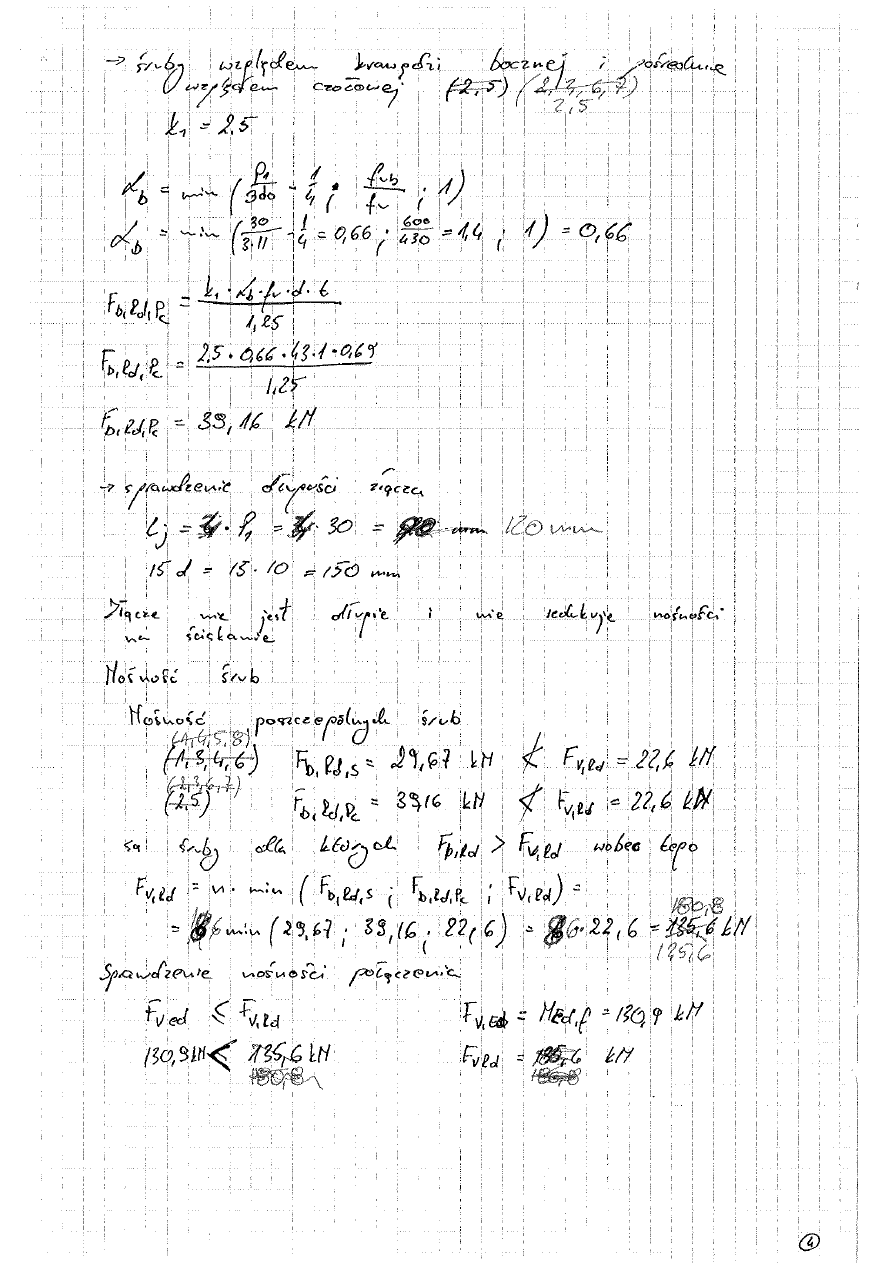 → śruby względem krawędzi bocznej i pośrednie
względem czołowej (2,5) (2,3,6,7)
2,5
k₁ = 2,5
α_b = min (P₁/3d₀ - 1/4 ; fub/fu ; 1)
α_b = min (30/3·11 - 1/4 = 0,66 ; 600/430 = 1,4 ; 1) = 0,66
F_b,Rd,Pc = k₁·α_b·fu·d·t / 1,25
F_b,Rd,Pc = 2,5·0,66·43·1·0,69 / 1,25
F_b,Rd,Pc = 39,16 kN
→ sprawdzenie długości złącza
Lj = 4·P₁ = 4·30 = 120 mm
15 d = 15·10 = 150 mm
Złącze nie jest długie i nie redukuje nośności
na ściskanie
Nośność śrub
Nośność poszczególnych śrub
(1,4,5,8)
(1,3,4,6) F_b,Rd,s = 29,67 kN ≮ F_v,Rd = 22,6 kN
(2,3,6,7)
(2,5) F_b,Rd,Pc = 39,16 kN ≮ F_v,Rd = 22,6 kN
są śruby dla których F_b,Rd > F_v,Rd wobec tego
F_v,Rd = n· min (F_b,Rd,s ; F_b,Rd,Pc ; F_v,Rd) =
180,8
= 6 min (29,67 ; 39,16 ; 22,6) = 6·22,6 = 135,6 kN
135,6
Sprawdzenie nośności połączenia
F_v,ed ≤ F_v,Rd F_v,Ed = Ned,f = 130,9 kN
130,9 kN < 135,6 kN F_v,Rd = 135,6 kN
180,8 180,8
4